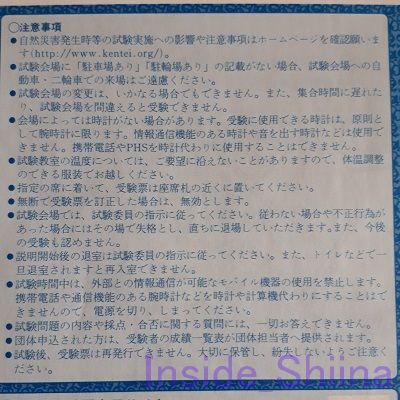 ○注意事項
●自然災害発生時等の試験実施への影響や注意事項はホームページを確認願いま
す(http://www.kentei.org/)。
●試験会場に「駐車場あり」「駐輪場あり」の記載がない場合、試験会場への自
動車・二輪車での来場はご遠慮ください。
●試験会場の変更は、いかなる場合でもできません。また、集合時間に遅れた
り、試験会場を間違えると受験できません。
●会場によっては時計がない場合があります。受験に使用できる時計は、原則と
して腕時計に限ります。情報通信機能のある時計や音を出す時計などは使用で
きません。携帯電話やPHSを時計代わりに使用することはできません。
●試験教室の温度については、ご要望に沿えないことがありますので、体温調整
のできる服装でお越しください。
●指定の席に着いて、受験票は座席札の近くに置いてください。
●無断で受験票を訂正した場合は、無効とします。
●試験会場では、試験委員の指示に従ってください。従わない場合や不正行為が
あった場合にはその場で失格とし、直ちに退場していただきます。また、今後
の受験も認めません。
●説明開始後の退室は試験委員の指示に従ってください。また、トイレなどで一
旦退室されますと再入室できません。
●試験時間中は、外部との情報通信が可能なモバイル機器の使用を禁止します。
携帯電話や通信機能のある腕時計などを時計や計算機代わりにすることはで
きませんので、電源を切り、しまってください。
●試験問題の内容や採点・合否に関する質問には、一切お答えできません。
●団体申込された方は、受験者の成績一覧表が団体担当者へ提供されます。
●試験後、受験票は再発行できません。大切に保管し、紛失しないようご注意く
ださい。
Inside Shiina